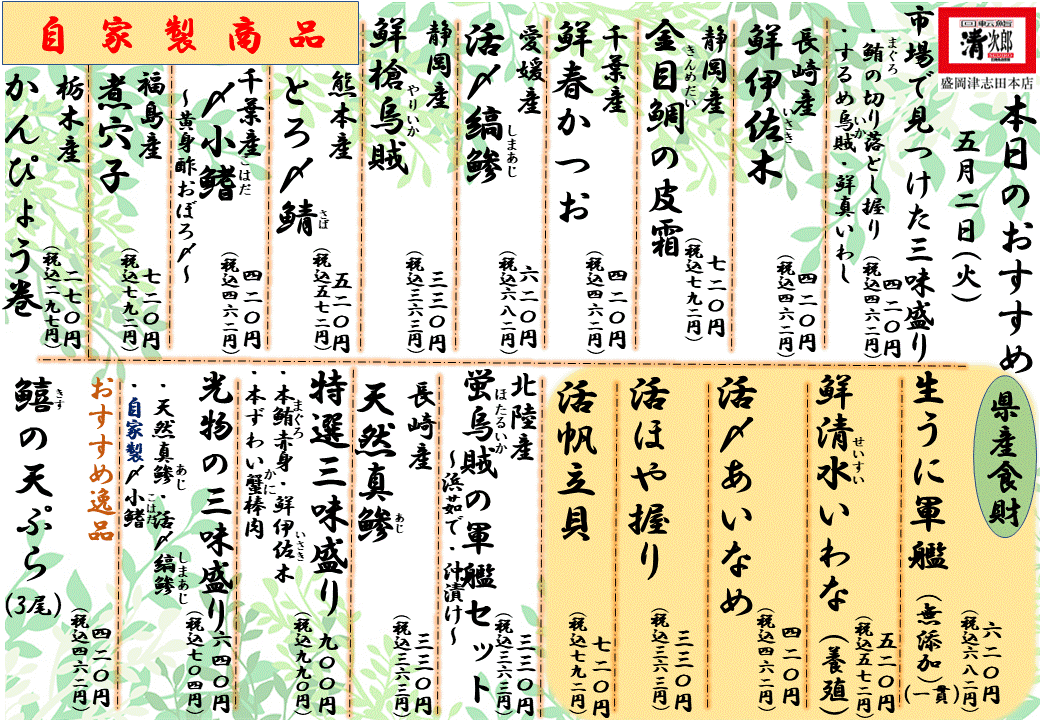 回転鮨
清次郎
盛岡津志田本店
本日のおすすめ
五月二日(火)
市場で見つけた三味盛り
・鮪の切り落とし握り
まぐろ
・するめ烏賊・鮮真いわし
いか
四二〇円
(税込四六二円)
長崎産
鮮伊佐木
いさき
四二〇円
(税込四六二円)
静岡産
金目鯛の皮霜
きんめだい
七二〇円
(税込七九二円)
千葉産
鮮春かつお
四二〇円
(税込四六二円)
愛媛産
活〆縞鯵
しまあじ
六二〇円
(税込六八二円)
静岡産
鮮槍烏賊
やりいか
三三〇円
(税込三六三円)
自家製商品
熊本産
とろ〆鯖
さば
五二〇円
(税込五七二円)
千葉産
〆小鰭
こはだ
~黄身酢おぼろ〆~
四二〇円
(税込四六二円)
福島産
煮穴子
七二〇円
(税込七九二円)
栃木産
かんぴょう巻
二七〇円
(税込二九七円)
県産食財
生うに軍艦
(無添加)
(一貫)
六二〇円
(税込六八二円)
鮮清水いわな(養殖)
せいすい
五二〇円
(税込五七二円)
活〆あいなめ
四二〇円
(税込四六二円)
活ほや握り
三三〇円
(税込三六三円)
活帆立貝
七二〇円
(税込七九二円)
北陸産
蛍烏賊の軍艦セット
ほたるいか
~浜茹で・汁漬け~
三三〇円
(税込三六三円)
長崎産
天然真鯵
あじ
三三〇円
(税込三六三円)
特選三味盛り
・本鮪赤身・鮮伊佐木
まぐろ
いさき
・本ずわい蟹棒肉
かに
九〇〇円
(税込九九〇円)
光物の三味盛り
・天然真鯵・活〆縞鯵
あじ
しまあじ
・自家製〆小鰭
こはだ
六四〇円
(税込七〇四円)
おすすめ逸品
鱚の天ぷら(3尾)
きす
四二〇円
(税込四六二円)